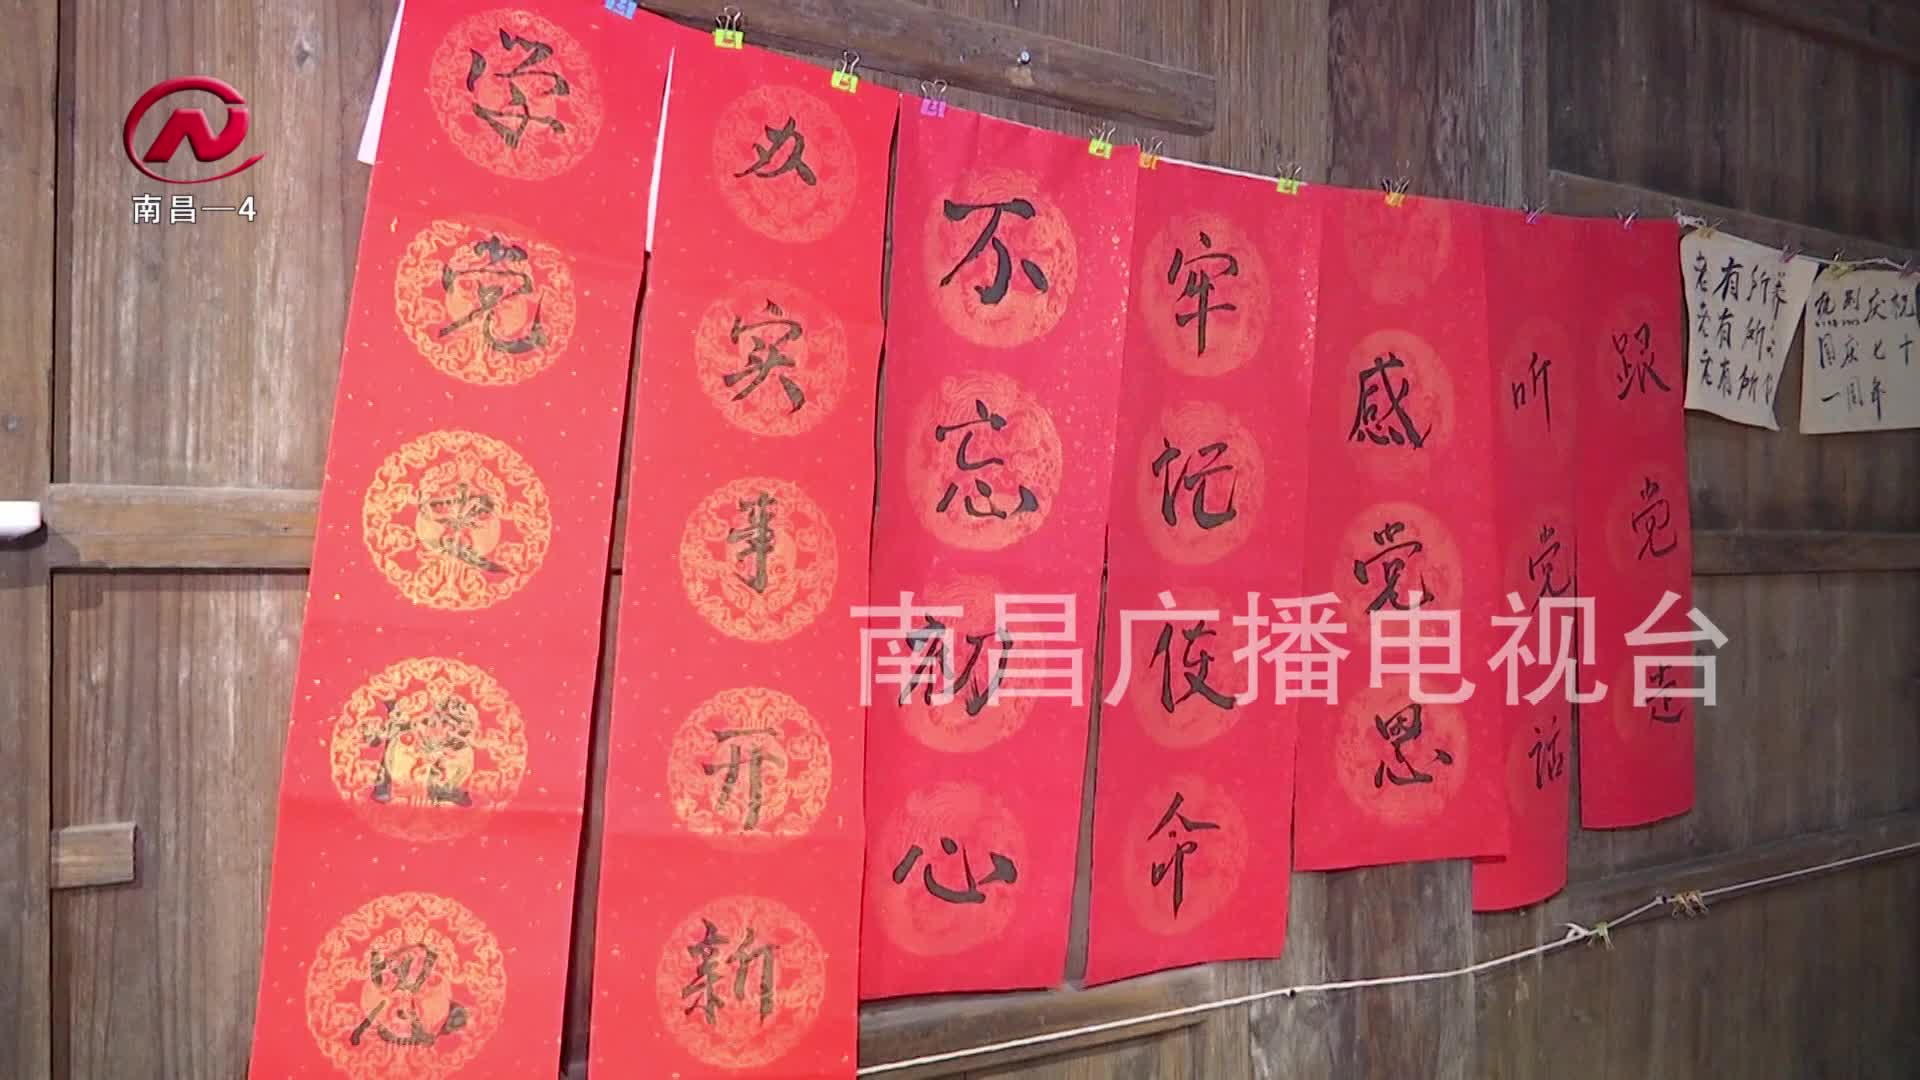 南昌—4
学党史悟思
办实事开新
不忘初心
牢记使命
感党恩
听党话
跟党走
老有所养
老有所
老有所
热烈庆祝
国庆七十
一周年
南昌广播电视台